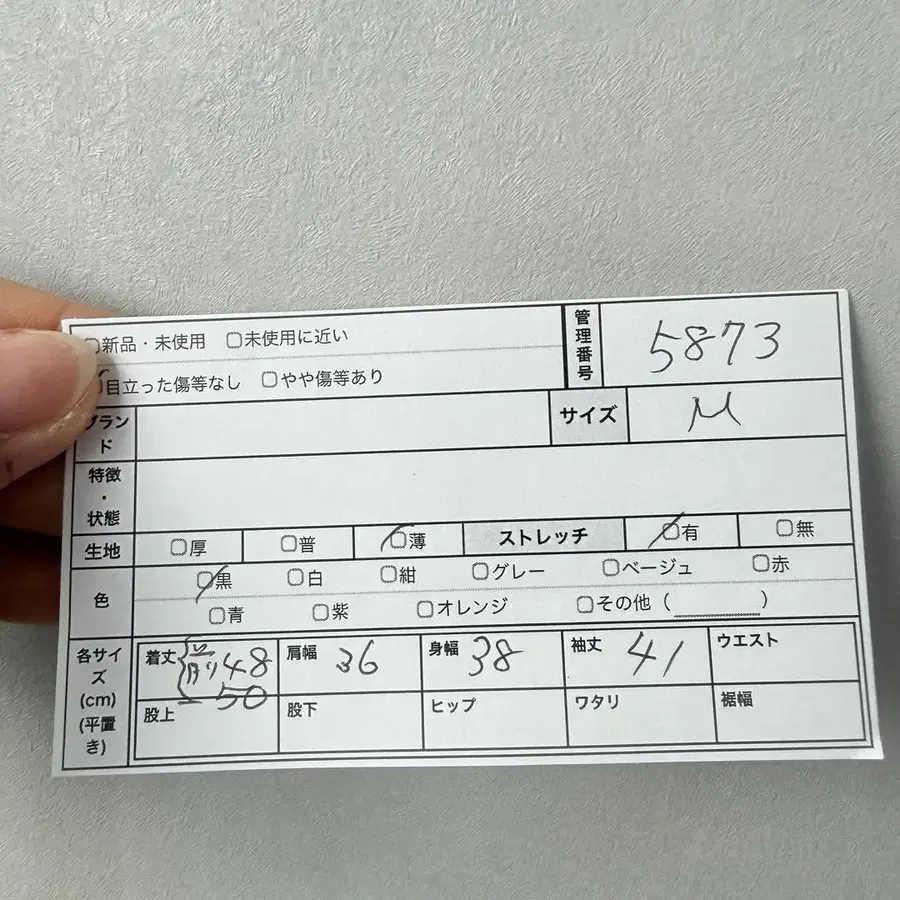 新品・未使用 未使用に近い
目立った傷等なし やや傷等あり
管理番号 5873
ブランド
サイズ M
特徴・状態
生地 厚 普 薄 ストレッチ 有 無
色 黒 白 紺 グレー ベージュ 赤
青 紫 オレンジ その他（ ）
各サイズ(cm)(平置き)
着丈 前り48 肩幅 36 身幅 38 袖丈 41 ウエスト
50
股上 股下 ヒップ ワタリ 裾幅